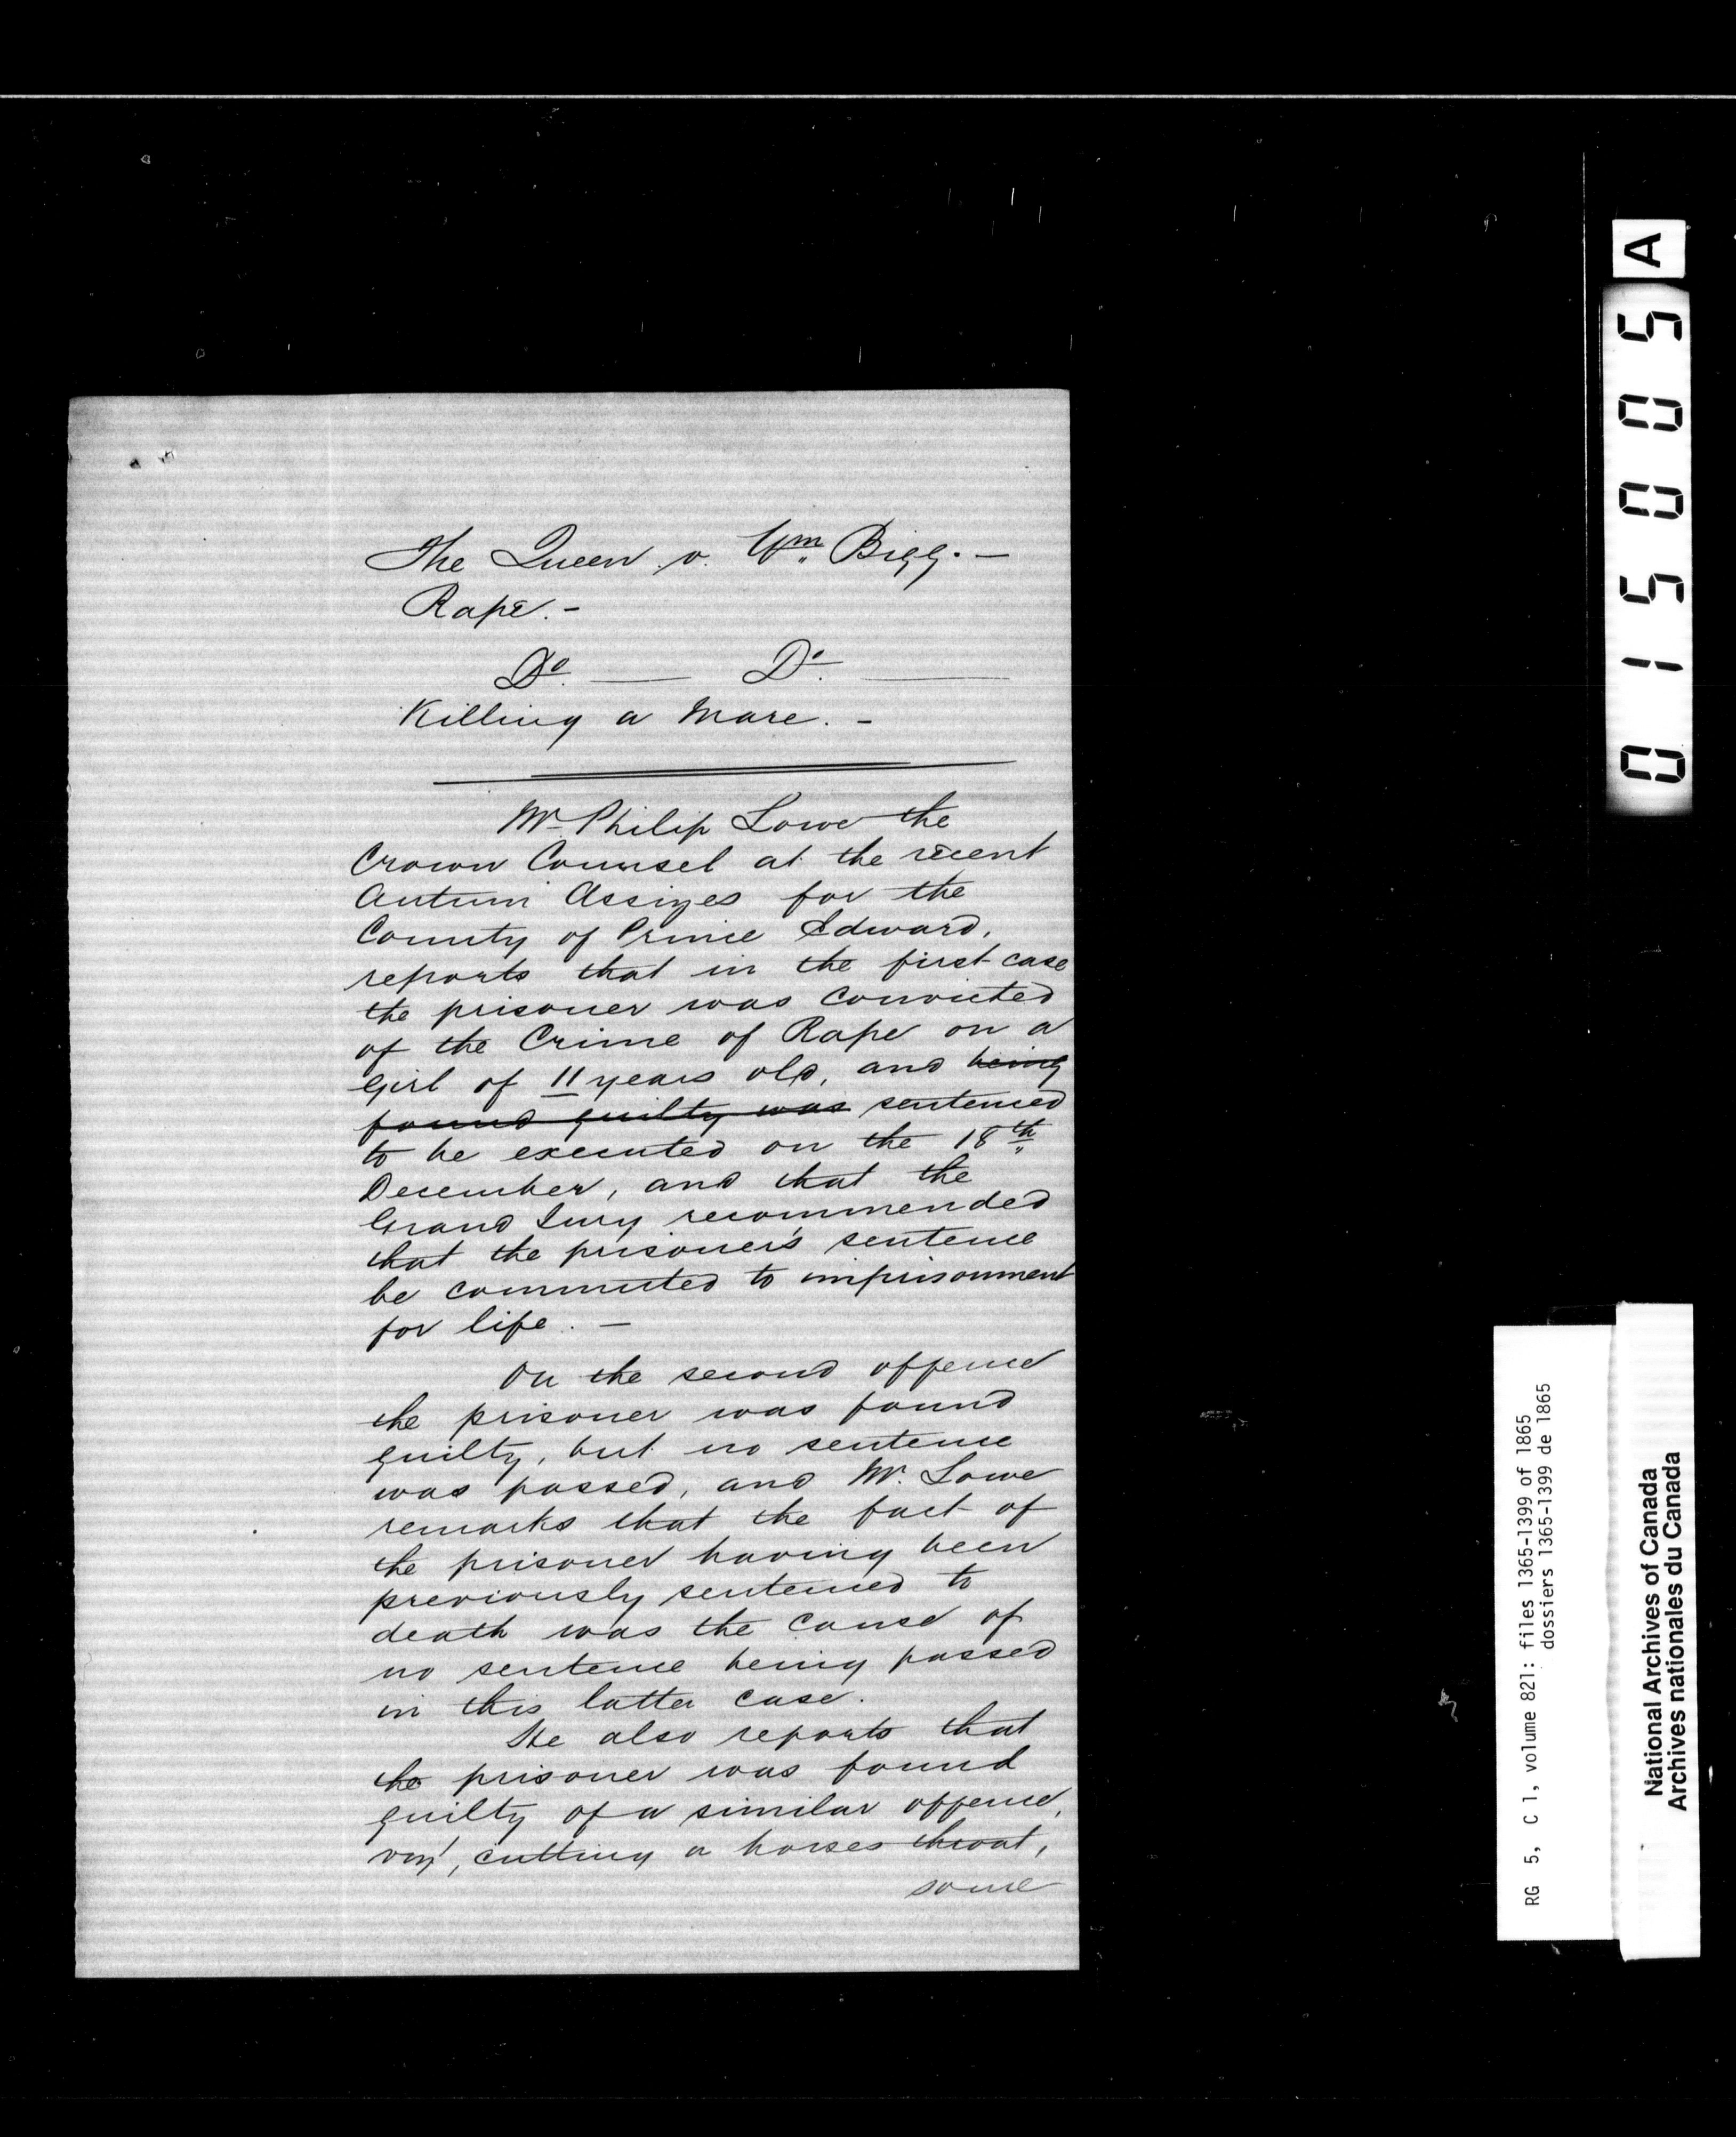 The Queen v. Wm. Bigg. —
Rape. -
Do. — Do. —
Killing a Mare. -
Mr Philip Lowe the
Crown Counsel at the recent
Autum Assizes for the
County of Prince Edward,
reports that in the first case
the prisoner was convicted
of the Crime of Rape on a
Girl of 11 years old, and being
found guilty was sentenced
to be executed on the 18th
December, and that the
Grand Jury recommended
that the prisoner's sentence
be commuted to imprisonment
for life. —
On the second offence
the prisoner was found
guilty, but no sentence
was passed, and Mr. Lowe
remarks that the fact of
the prisoner having been
previously sentenced to
death was the cause of
no sentence being passed
in this latter case.
He also reports that
the prisoner was found
guilty of a similar offence,
viz', cutting a horses throat,
some
A
015005
RG 5, C 1, volume 821: files 1365-1399 of 1865
dossiers 1365-1399 de 1865
National Archives of Canada
Archives nationales du Canada